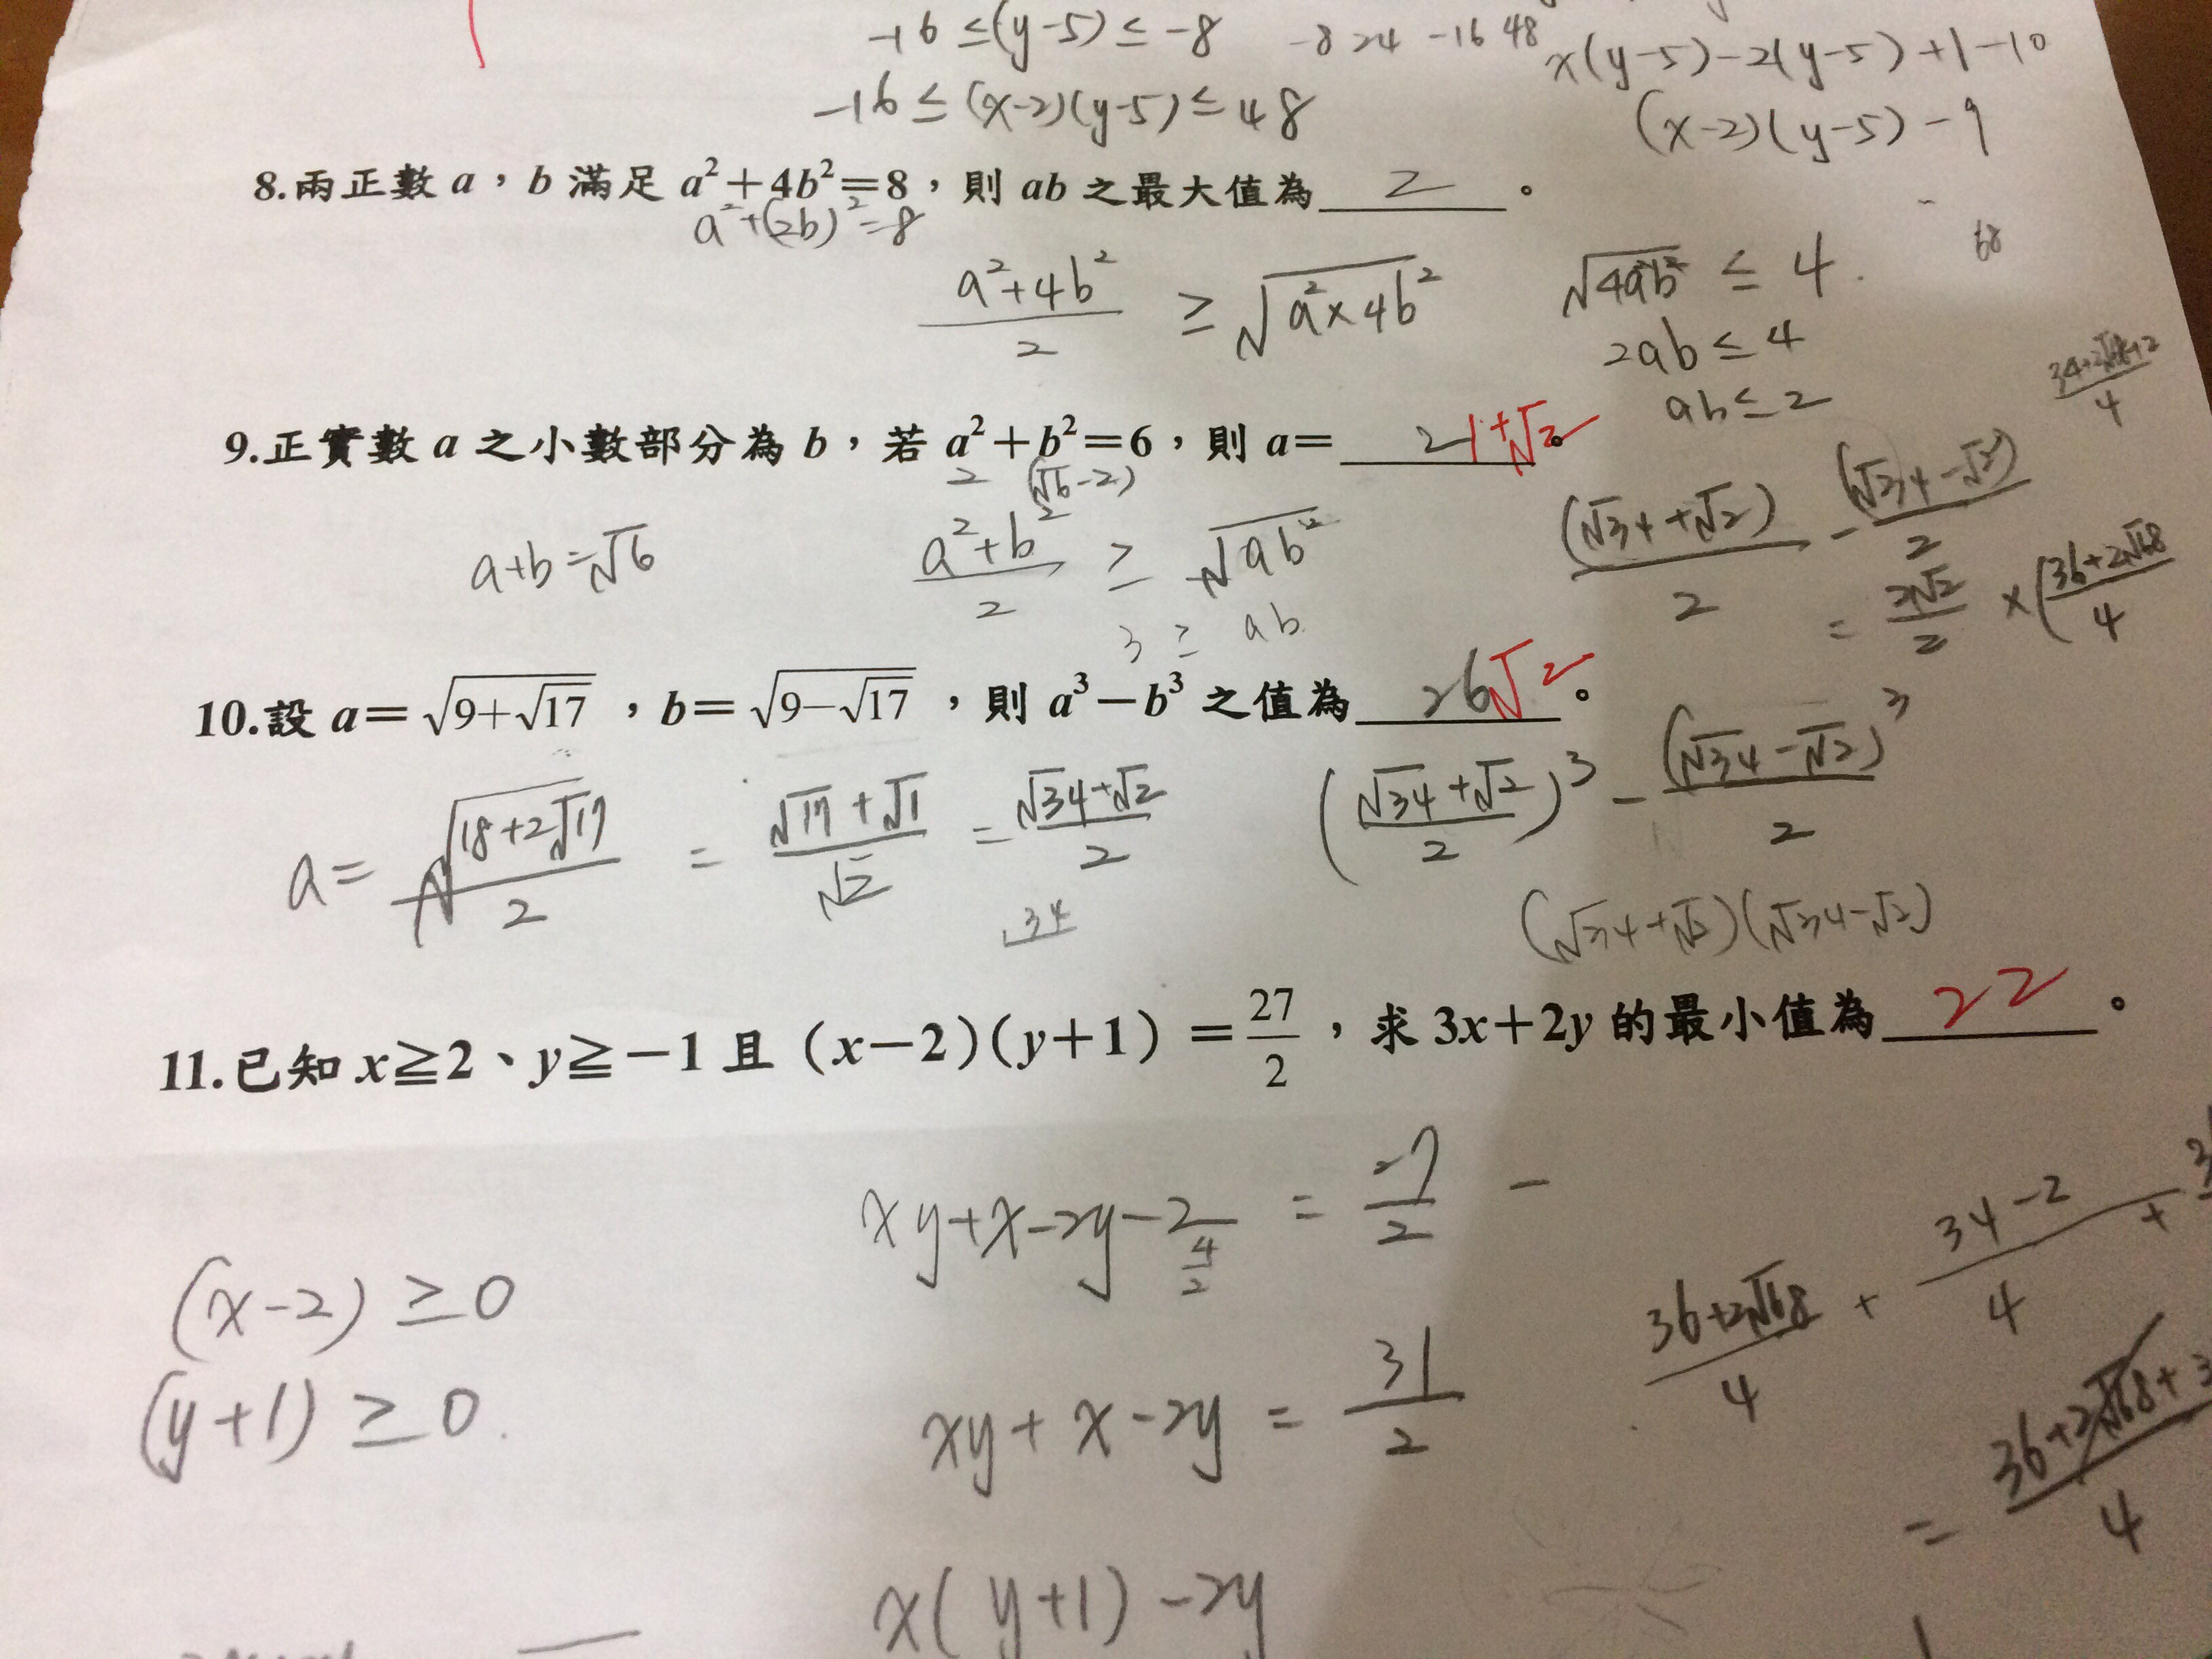 -16 ≤ (y-5) ≤ -8
-8 24 -16 48
x(y-5)-2(y-5)+1-10
-16 ≤ (x-2)(y-5) ≤ 48
(x-2)(y-5)-9
8.兩正數 a，b 滿足 a²+4b²=8，則 ab 之最大值為 2 。
a²+(2b)²=8
68
(a²+4b²)/2 ≥ √(a²×4b²)
√(4a²b²) ≤ 4.
2ab ≤ 4
ab ≤ 2
9.正實數 a 之小數部分為 b，若 a²+b²=6，則 a= 2 1+√2 。
2 (√6-2)
a+b=√6
(a²+b²)/2 ≥ √(ab²)
3 ≥ ab
(√34+√2)/2 - (√34-√2)/2
= 2√2/2 × (36+2√68)/4
10.設 a=√(9+√17)，b=√(9-√17)，則 a³-b³ 之值為 26√2 。
a= √(18+2√17)/2 = (√17+√1)/√2 = (√34+√2)/2
((√34+√2)/2)³ - (√34-√2)³/2
34
(√34+√2)(√34-√2)
11.已知 x≧2、y≧-1 且 (x-2)(y+1) = 27/2，求 3x+2y 的最小值為 22 。
xy+x-2y-2 = 27/2 -
4/2
(x-2) ≥ 0
(36+2√68)/4 + (34-2)/4 +
(y+1) ≥ 0.
xy+x-2y = 31/2
= (36+2√68+3)/4
x(y+1)-2y